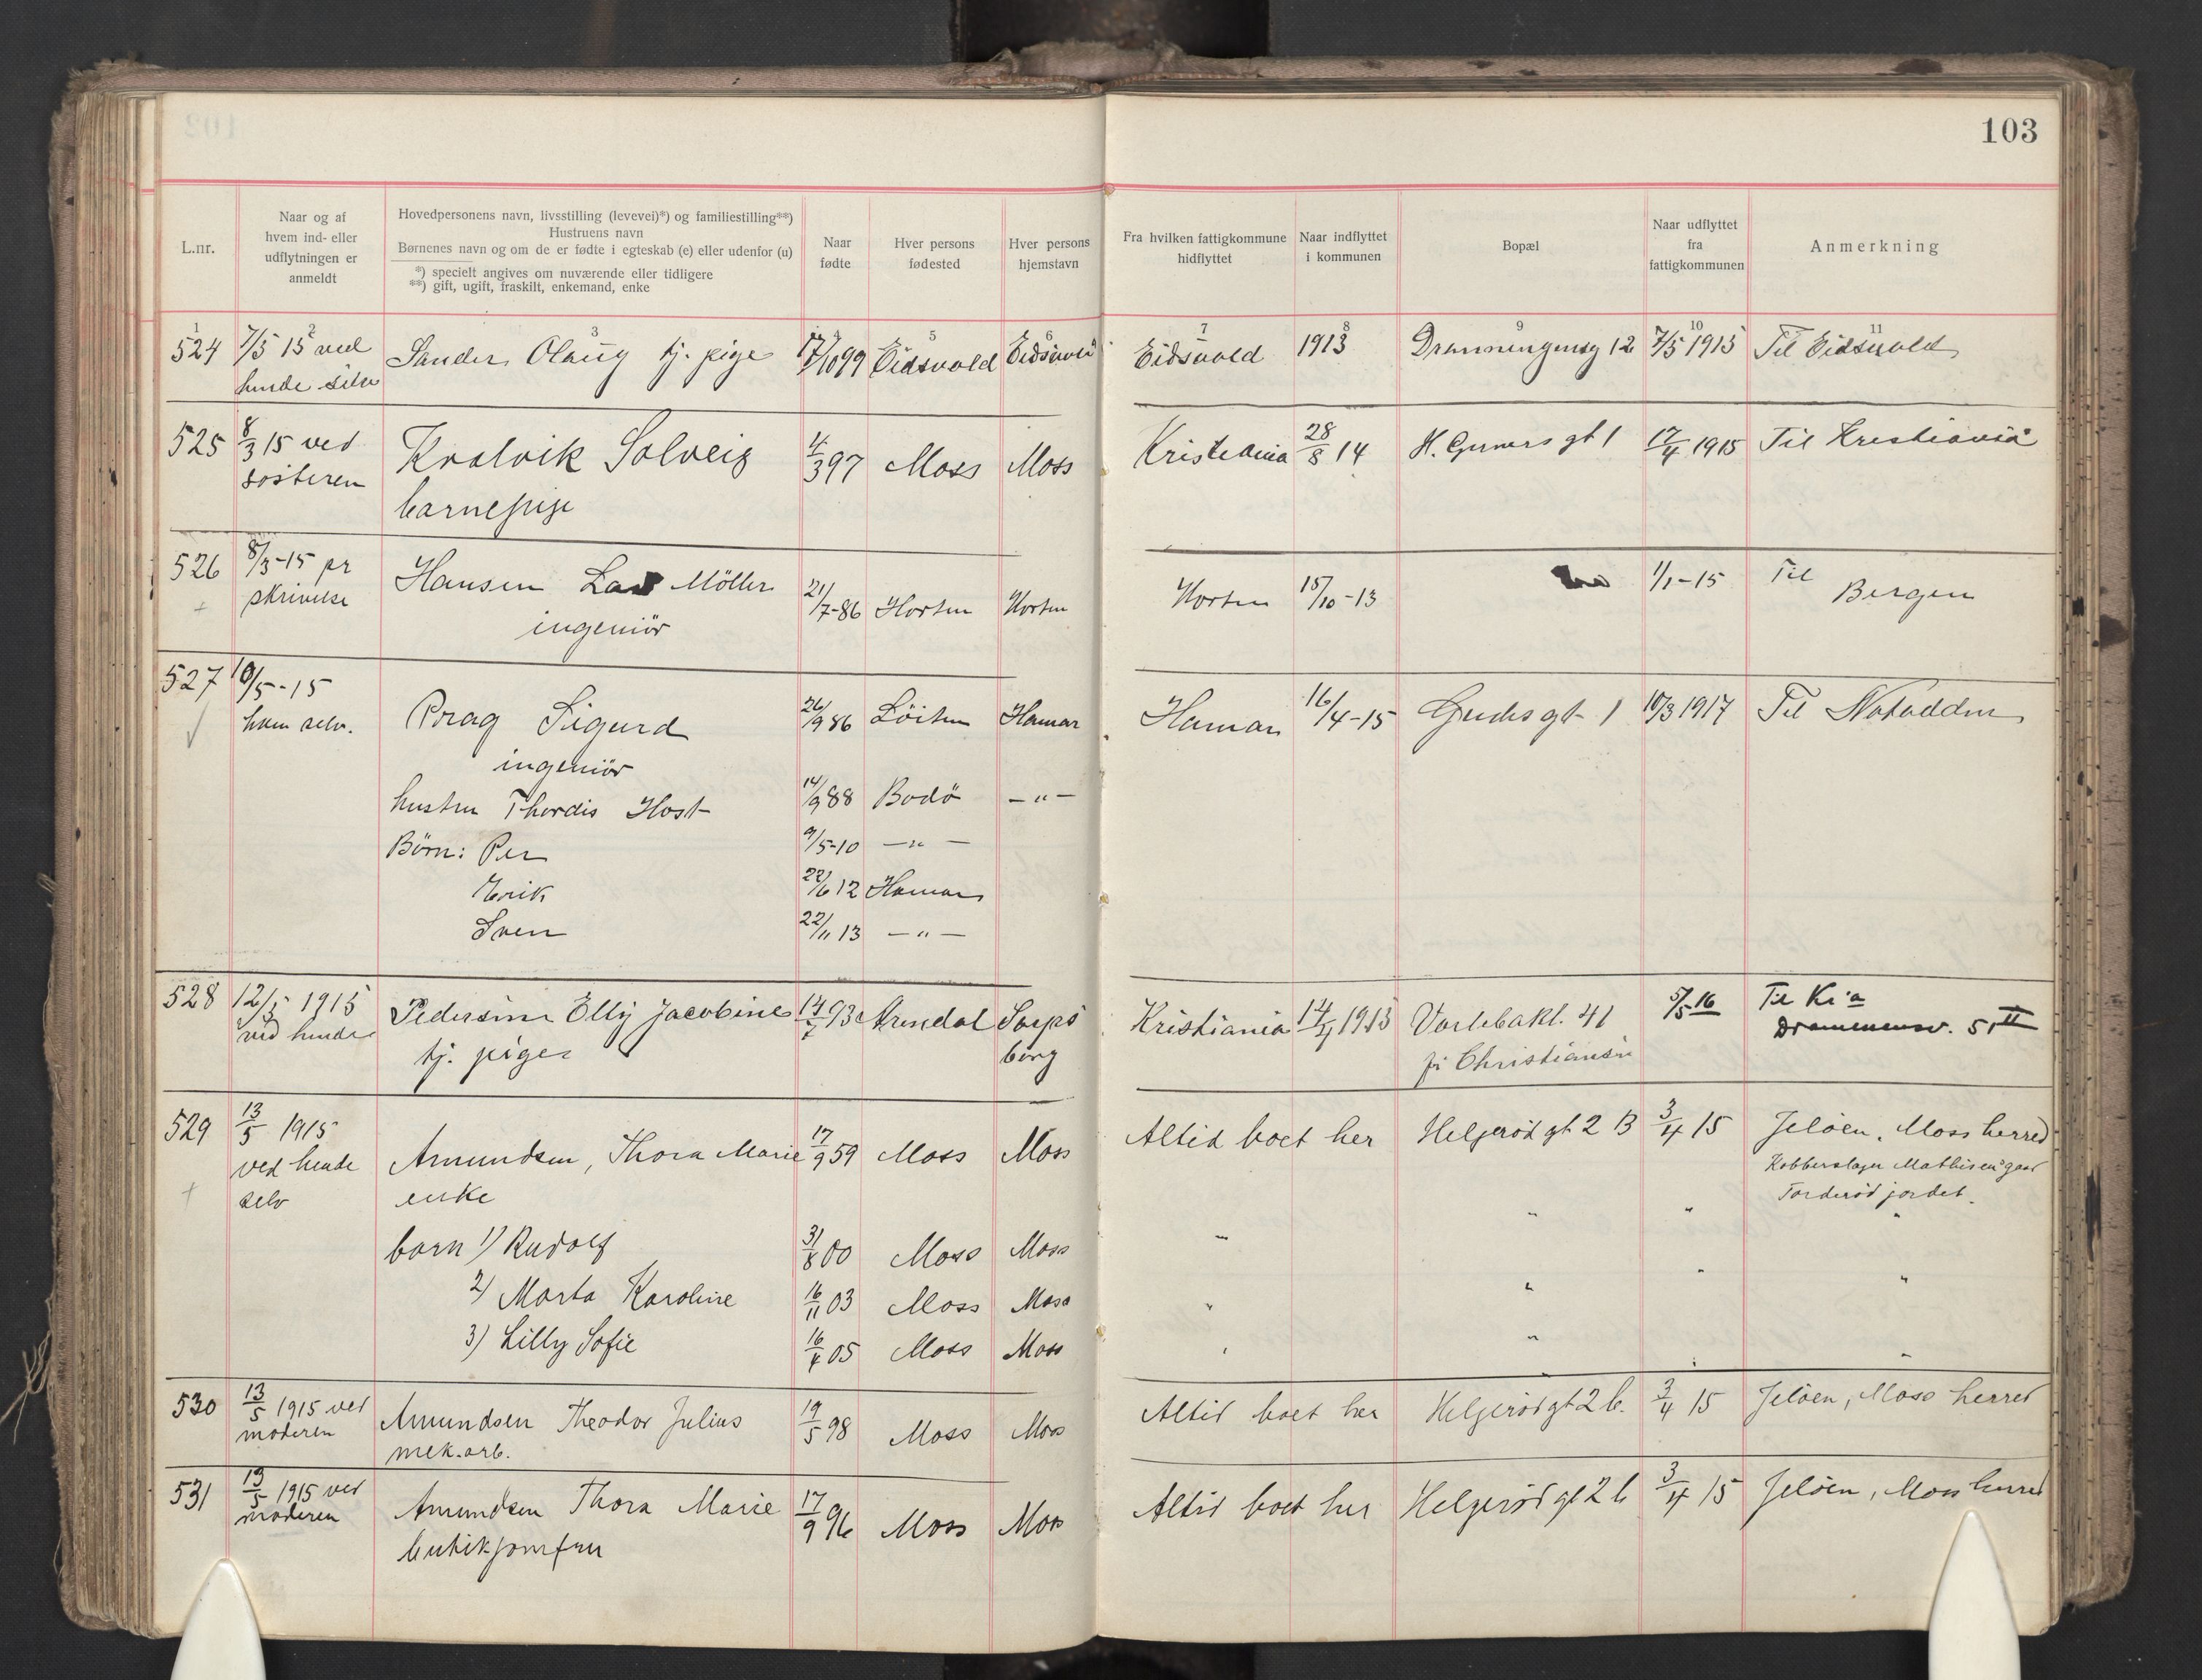 103
L.nr.
Naar og af
hvem ind- eller
udflytningen er
anmeldt
Hovedpersonens navn, livsstilling (levevei)*) og familiestilling**)
Hustruens navn
Børnenes navn og om de er fødte i egteskab (e) eller udenfor (u)
*) specielt angives om nuværende eller tidligere
**) gift, ugift, fraskilt, enkemand, enke
Naar
fødte
Hver persons
fødested
Hver persons
hjemstavn
Fra hvilken fattigkommune
hidflyttet
Naar indflyttet
i kommunen
Bopæl
Naar udflyttet
fra
fattigkommunen
Anmerkning
1 2 3 4 5 6 7 8 9 10 11
524 7/5 15 ved Sander Olaug tj. pige 17/10 99 Eidsvold Eidsvold Eidsvold 1913 Dronningensg 12 7/5 1915 Til Eidsvold
hende selv
525 8/3 15 ved Kralvik Solveig 4/3 97 Moss Moss Kristiania 28/8 14 H. Gerners gt 1 17/4 1915 Til Kristiania
søsteren
barnepige
526 8/3-15 pr Hansen Møller 21/7-86 Horten Horten Horten 15/10-13 1/1-15 Til Bergen
skrivelse
ingeniör
527 10/5-15
ham selv. Prag Sigurd 26/9 86 Löiten Hamar Hamar 16/4-15 gt 1 10/3 1917 Til Notodden
ingeniör
hustru Thordis Host 14/9 88 Bodö -"-
Börn: Per 9/5-10 -"-
Erik 22/6 12 Hamar
Sven 22/11 13 -"-
528 12/5 1915 Pedersen Elly Jacobine 14/7 93 Arendal Sarps Kristiania 14/4 1913 Varlebakl. 41 5/5 16 Til Kr.a
ved hende tj. pige borg Christiansen Drammensv. 51 II
529 13/5 1915
ved hende Amundsen, Thora Marie 17/9 59 Moss Moss Altid boet her Helgerödgt 2 B 3/4 15 Jelöen, Moss herred
selv enke Kobberslager Mathisens gaar
Torderöd jordet.
barn 1) Rudolf 31/8 00 Moss Moss " " " "
2) Marta Karoline 16/11 03 Moss Moss " " " "
3) Lilly Sofie 16/4 05 Moss Moss " " " "
530 13/5 1915 ved Amundsen Theodor Julius 19/5 98 Moss Moss Altid boet her Helgerödgt 2 b. 3/4 15 Jelöen, Moss herred
moderen mek. arb.
531 13/5 1915 ved Amundsen Thora Marie 17/9 96 Moss Moss Altid boet her Helgerödgt 2 b 3/4 15 Jelöen, Moss herred
moderen
butikjomfru